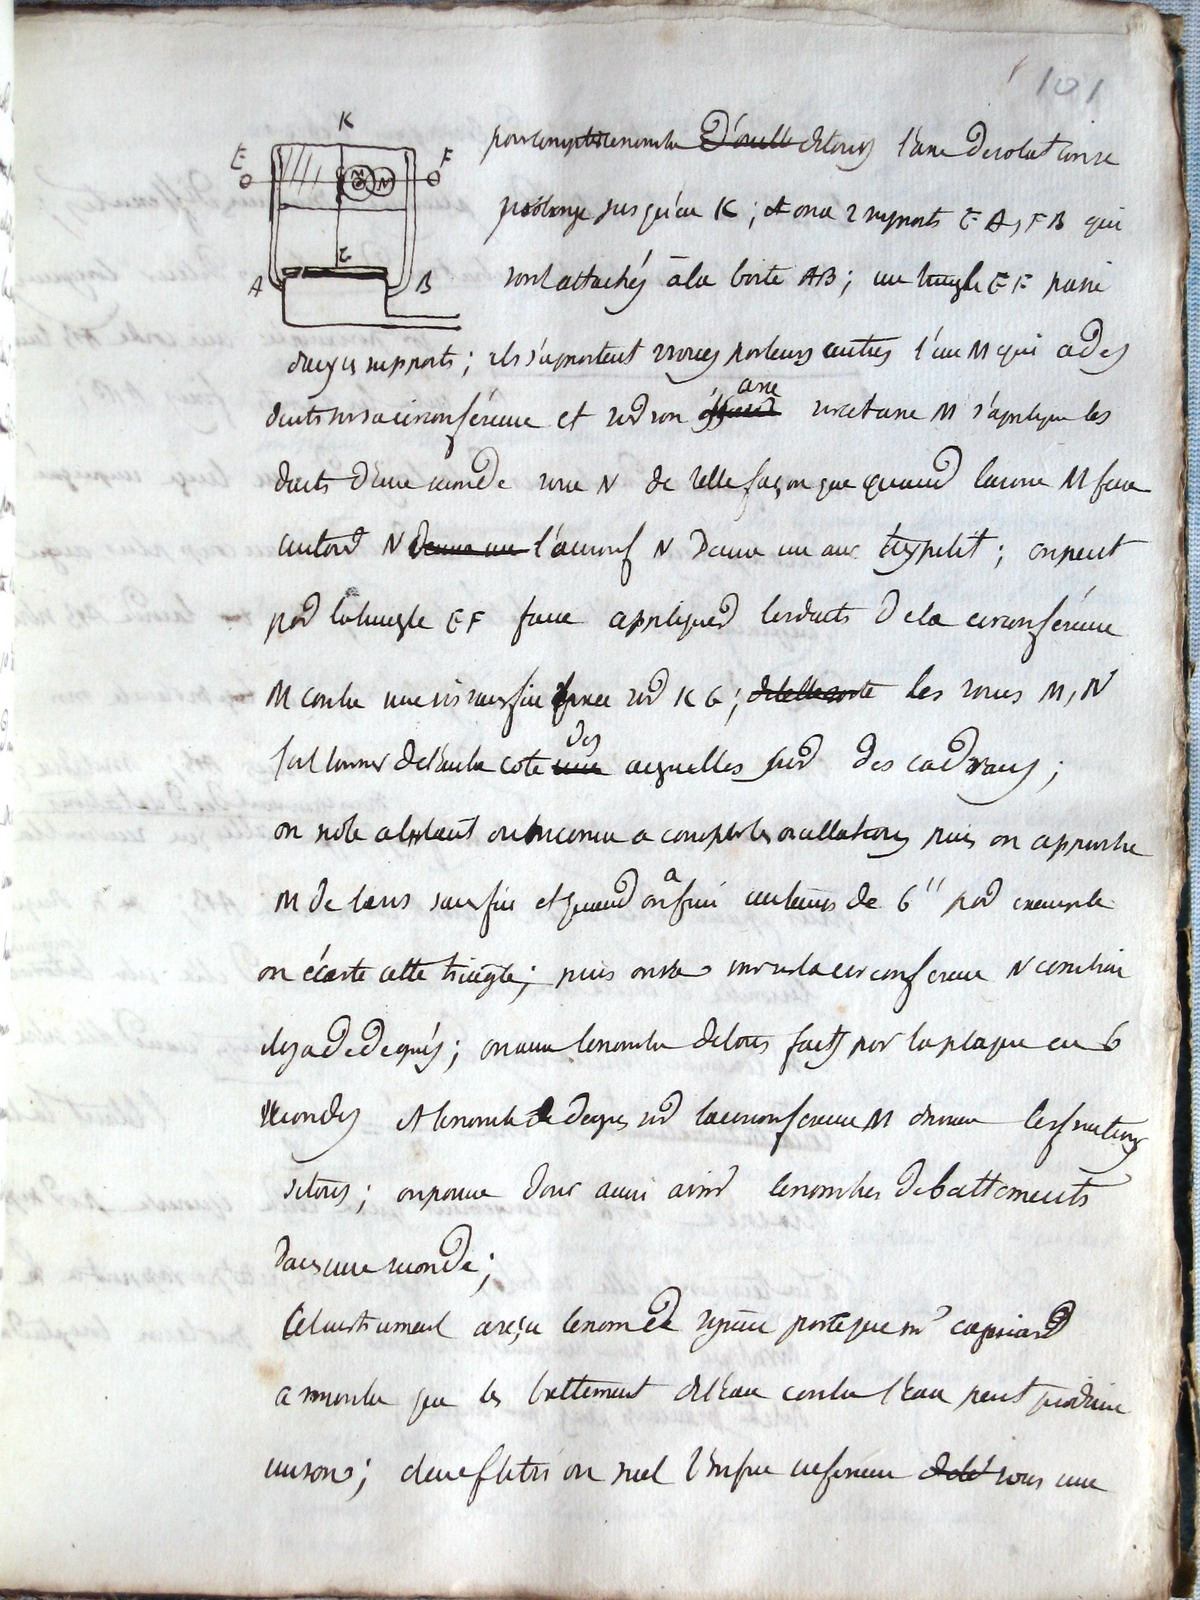 101
K
E F
M N
G
A B
pour compter le nombre d'oscill de tours l'axe de rotation se
prolonge jusqu'en K ; et on a 2 supports EA, FB qui
sont attachés à la boite AB ; une tringle EF passe
dans ces supports ; ils supportent 2 roues l'une M qui a des
dents sur sa circonférence et sur son axe sur cet axe M s'applique les
dents d'une seconde roue N de telle façon que quand la roue M fera
un tour N l'autre roue N d'une un arc très petit ; on peut
par la tringle EF faire appliquer les dents de la circonférence
M contre une vis sans fin sur KG ; de telle sorte les roues M, N
font tourner de l'autre coté des aiguilles sur des cadrans ;
on note l'instant où on commence a compter les oscillations puis on approche
M de la vis sans fin et quand on a fini au tems de 6" par exemple
on écarte cette tringle ; puis on va voir sur la circonference N combien
il y a de degrés ; on aura le nombre de tours faits par la plaque en 6
secondes et le nombre de degres sur la circonference M donnera les fractions
de tours ; on pourra donc aussi avoir le nombres de battements
dans une seconde ;
Cet instrument a reçu le nom de syrène parceque mr cagniard
a montré que les battement de l'eau contre l'eau peut produire
un son ; si l'on met l'orifice inferieur sous une